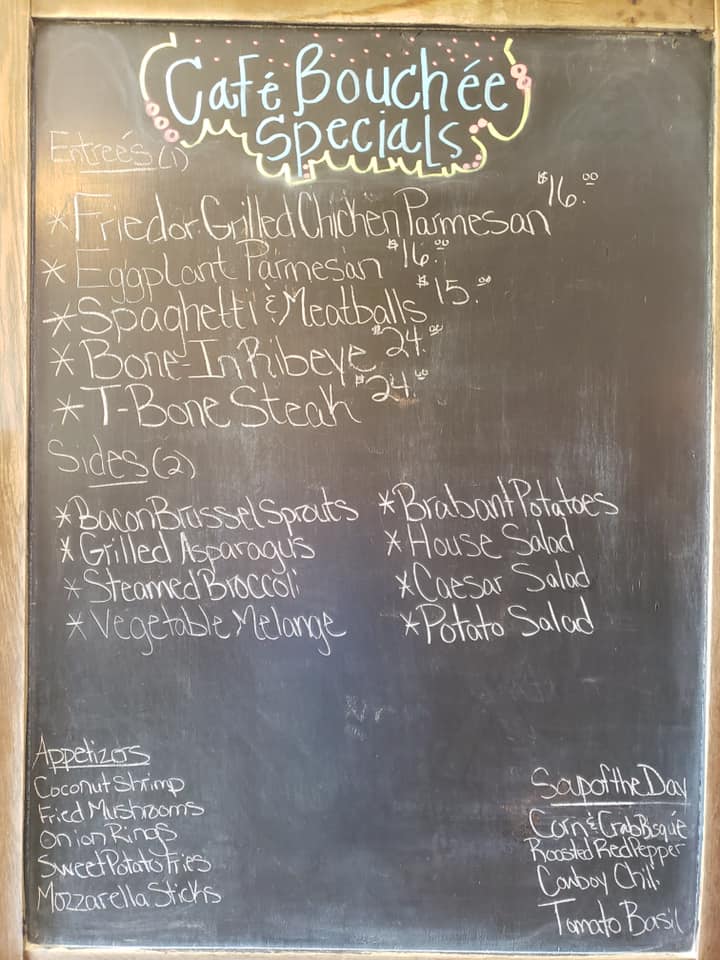 Café Bouchée
Specials
Entreé's (1)
* Fried or Grilled Chicken Parmesan $16.00
* Eggplant Parmesan $16.00
* Spaghetti & Meatballs $15.00
* Bone-In Ribeye $24.00
* T-Bone Steak $24.00
Sides (2)
* Bacon Brussel Sprouts
* Grilled Asparagus
* Steamed Broccoli
* Vegetable Melange
* Brabant Potatoes
* House Salad
* Caesar Salad
* Potato Salad
Appetizers
Coconut Shrimp
Fried Mushrooms
Onion Rings
Sweet Potato Fries
Mozzarella Sticks
Soup of the Day
Corn & Crab Bisque
Roasted Red Pepper
Cowboy Chili
Tomato Basil